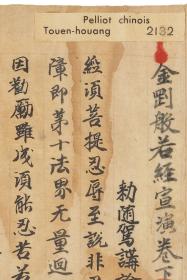 Pelliot chinois
Touen-houang 2132
金剛般若經宣演卷下
勑隨駕講
經須菩提忍辱至說非
障即第十法界无量迴
因勸勵雖成須能忍苦